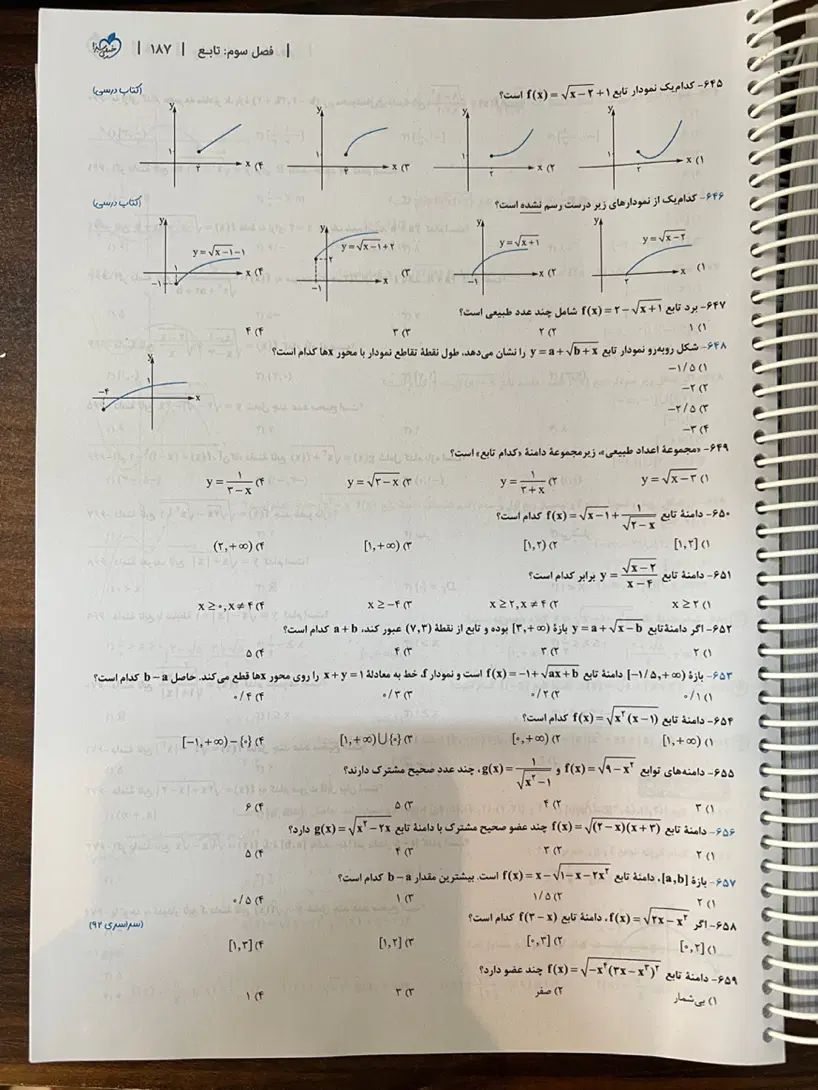 فصل سوم: تابع | ۱۸۷ |
۶۴۵- کدام‌یک نمودار تابع f(x) = √(x−۲) + ۱ است؟ (کتاب درسی)
۱) ۲) ۳) ۴)
۶۴۶- کدام‌یک از نمودارهای زیر درست رسم نشده است؟ (کتاب درسی)
۱) y = √(x−۲) ۲) y = √(x+۱) ۳) y = √(x−۱) + ۲ ۴) y = √(x−۱) − ۱
۶۴۷- برد تابع f(x) = ۲ − √(x+۱) شامل چند عدد طبیعی است؟
۱) ۱ ۲) ۲ ۳) ۳ ۴) ۴
۶۴۸- شکل روبه‌رو نمودار تابع y = a + √(b+x) را نشان می‌دهد، طول نقطهٔ تقاطع نمودار با محور xها کدام است؟
۱) −۱/۵
۲) −۲
۳) −۲/۵
۴) −۳
۶۴۹- «مجموعهٔ اعداد طبیعی»، زیرمجموعهٔ دامنهٔ «کدام تابع» است؟
۱) y = √(x−۳) ۲) y = ۱/(۳+x) ۳) y = √(۳−x) ۴) y = ۱/(۳−x)
۶۵۰- دامنهٔ تابع f(x) = √(x−۱) + ۱/√(۲−x) کدام است؟
۱) [۱,۲] ۲) [۱,۲) ۳) [۱,+∞) ۴) (۲,+∞)
۶۵۱- دامنهٔ تابع y = √(x−۲)/(x−۴) برابر کدام است؟
۱) x ≥ ۲ ۲) x ≥ ۲, x ≠ ۴ ۳) x ≥ −۴ ۴) x ≥ ۰, x ≠ ۴
۶۵۲- اگر دامنهٔ تابع y = a + √(x−b) بازهٔ [۳,+∞) بوده و تابع از نقطهٔ (۷,۳) عبور کند، a+b کدام است؟
۱) ۲ ۲) ۳ ۳) ۴ ۴) ۵
۶۵۳- بازهٔ [−۱/۵,+∞) دامنهٔ تابع f(x) = −۱ + √(ax+b) است و نمودار f، خط به معادلهٔ x+y=۱ را روی محور xها قطع می‌کند. حاصل b−a کدام است؟
۱) ۰/۱ ۲) ۰/۲ ۳) ۰/۳ ۴) ۰/۴
۶۵۴- دامنهٔ تابع f(x) = √(x²(x−۱)) کدام است؟
۱) [۱,+∞) ۲) [۰,+∞) ۳) [۱,+∞)∪{۰} ۴) [−۱,+∞)−{۰}
۶۵۵- دامنه‌های توابع f(x) = √(۹−x²) و g(x) = ۱/√(x²−۱)، چند عدد صحیح مشترک دارند؟
۱) ۳ ۲) ۴ ۳) ۵ ۴) ۶
۶۵۶- دامنهٔ تابع f(x) = √((۲−x)(x+۳)) چند عضو صحیح مشترک با دامنهٔ تابع g(x) = √(x²−۲x) دارد؟
۱) ۲ ۲) ۳ ۳) ۴ ۴) ۵
۶۵۷- بازهٔ [a,b]، دامنهٔ تابع f(x) = x − √(۱−x−۲x²) است. بیشترین مقدار b−a کدام است؟
۱) ۲ ۲) ۱/۵ ۳) ۱ ۴) ۰/۵
۶۵۸- اگر f(x) = √(۲x−x²)، دامنهٔ تابع f(۳−x) کدام است؟ (سراسری ۹۲)
۱) [۰,۲] ۲) [۰,۳] ۳) [۱,۲] ۴) [۱,۳]
۶۵۹- دامنهٔ تابع f(x) = √(−x⁴(۳x−x³)²) چند عضو دارد؟
۱) بی‌شمار ۲) صفر ۳) ۳ ۴) ۱